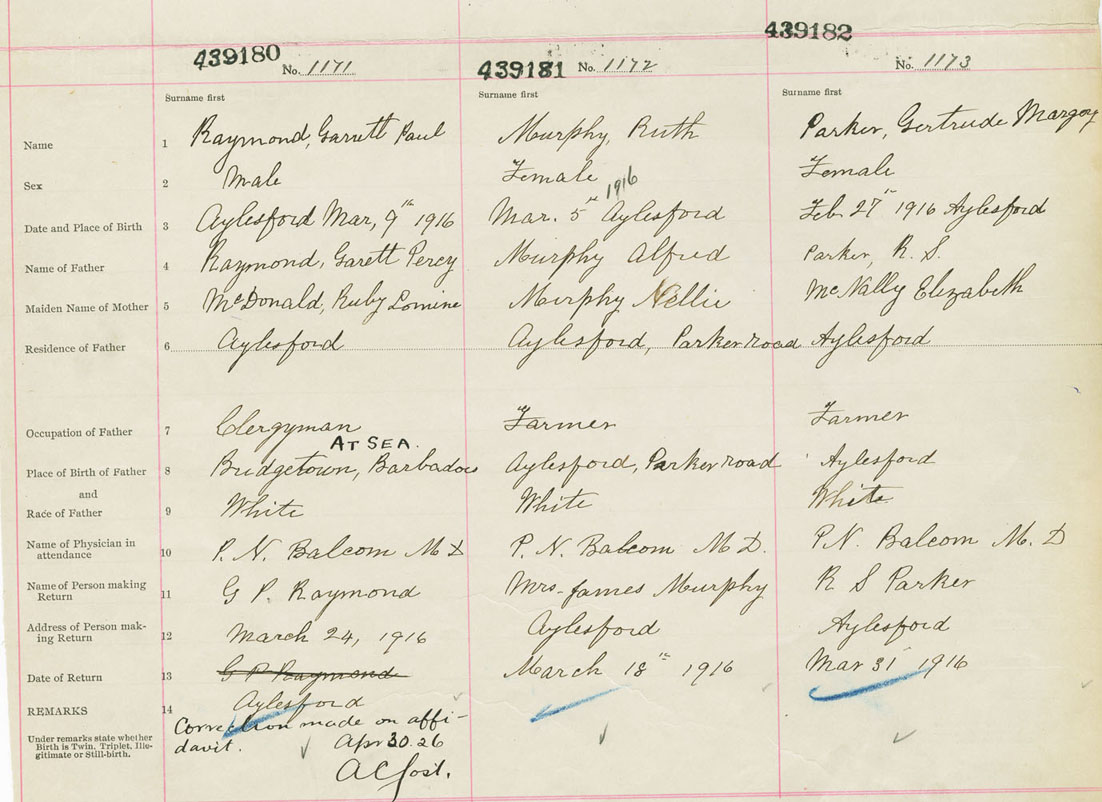 439180 No. 1171
439181 No. 1172
439182 No. 1173
Surname first Surname first Surname first
Name 1 Raymond, Garrett Paul Murphy, Ruth Parker, Gertrude
Sex 2 Male Female Female
1916
Date and Place of Birth 3 Aylesford Mar, 9th 1916 Mar. 5th Aylesford Feb 27th 1916 Aylesford
Name of Father 4 Raymond, Garett Percy Murphy Alfred Parker, R. S.
Maiden Name of Mother 5 McDonald, Ruby Murphy Nellie McNally Elizabeth
Residence of Father 6 Aylesford Aylesford, Parker road Aylesford
Occupation of Father 7 Clergyman Farmer Farmer
AT SEA.
Place of Birth of Father 8 Bridgetown, Barbados Aylesford, Parker road Aylesford
and
Race of Father 9 White White White
Name of Physician in
attendance 10 P. N. Balcom M D P. N. Balcom M D. P. N. Balcom M. D
Name of Person making
Return 11 G P. Raymond Mrs. James Murphy R S Parker
Address of Person mak-
ing Return 12 March 24, 1916 Aylesford Aylesford
Date of Return 13 G P Raymond March 18th 1916 Mar 31 1916
Aylesford
REMARKS 14
Under remarks state whether
Birth is Twin, Triplet, Ille-
gitimate or Still-birth.
Correction made on affi-
davit. Apr 30. 26